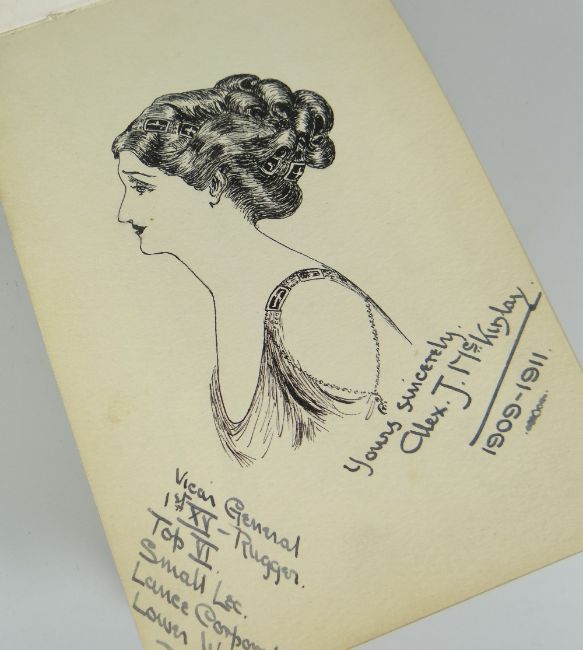 Yours Sincerely.
Alex. J. McKinlay.
1909-1911.
Vicar General
1st XV - Rugger.
Top VI.
Small Lec.
Lance Corporal
Lower